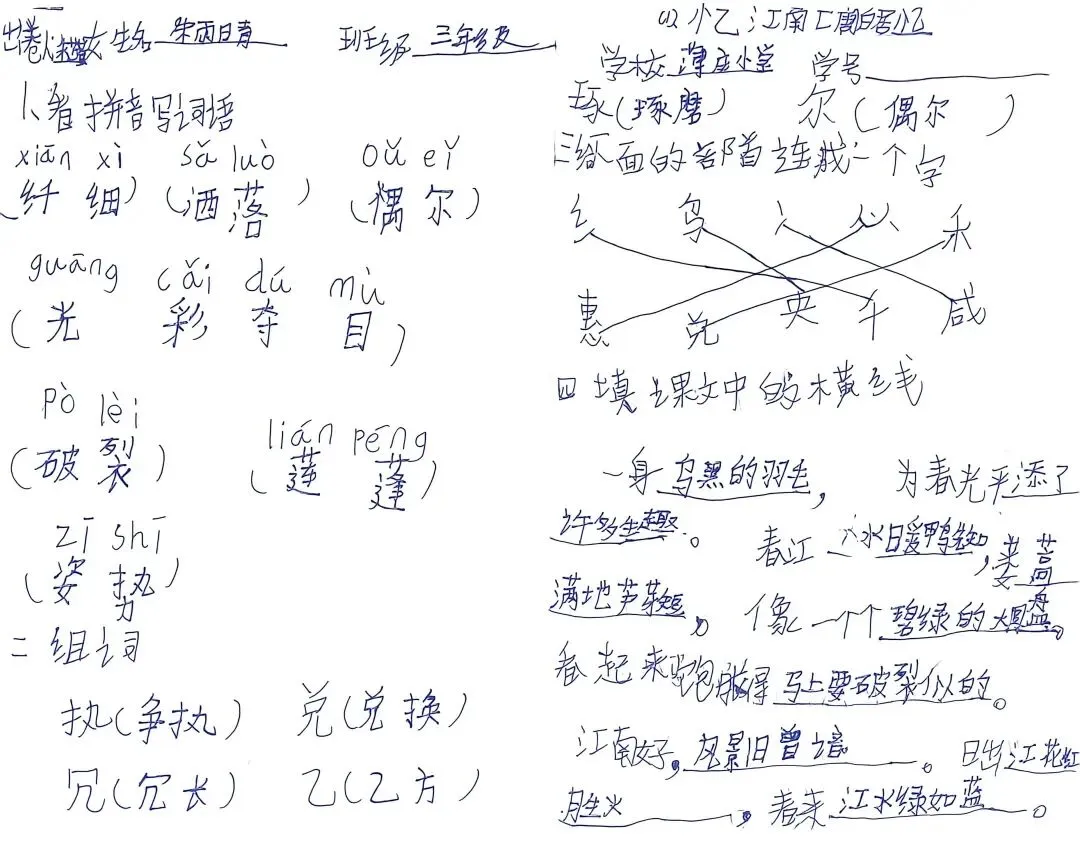 班级 三年级
一、看拼音写词语
xiān xì sǎ luò ǒu eǐ
(纤细) (洒落) (偶尔)
guāng cǎi dú mù
(光彩夺目)
pò lèi lián péng
(破裂) (莲蓬)
zī shī
(姿势)
二 组词
执(争执) 兑(兑换)
冗(冗长) 乙(乙方)
学校 学号
琢(琢磨) 尔(偶尔)
三给面的部首连成一个字
纟 鸟 冫 从 禾
惠 兑 央 千 咸
四填课文中的横线
一身乌黑的羽毛, 为春光平添了
许多生趣。 春江水暖鸭先知,蒌蒿
满地芦芽短。 像一个个碧绿的大圆盘。
看起来饱胀得马上要破裂似的。
江南好,风景旧曾谙。 日出江花红
胜火,春来江水绿如蓝。